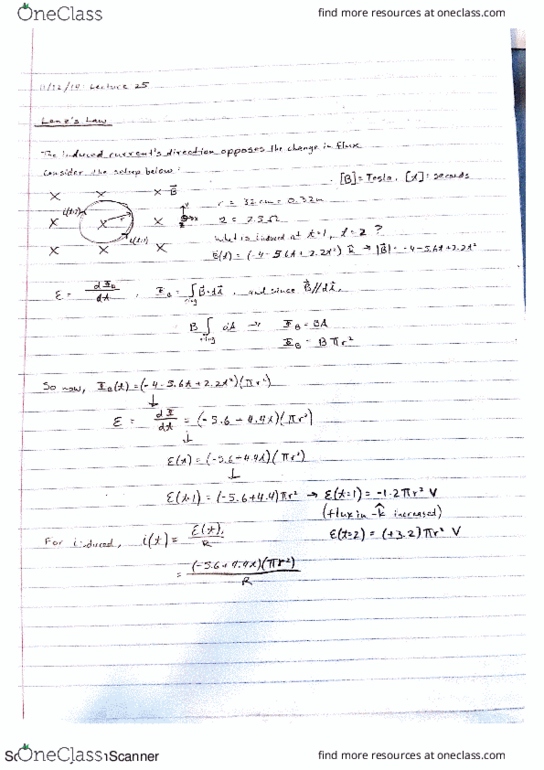 OneClass
find more resources at oneclass.com
Lecture 25
Lenz's Law
The induced current's direction opposes the change in flux
Consider the setup below:
[B] = Tesla, [t] = seconds
× × × B⃗
× × ×
× × ×
r = 32 cm = 0.32m
What is induced at t=1, t=2 ?
B(t) = (-4 - 5.6t + 2.2t²) k̂ → |B| = -4 - 5.6t + 2.2t²
ε = dΦB/dt , ΦB = ∫ B⃗·dA⃗ , and since B⃗ // dA⃗,
B ∫ dA → ΦB = BA
ΦB = Bπr²
So now, ΦB(t) = (-4 - 5.6t + 2.2t²)(πr²)
↓
ε = dΦ/dt = (-5.6 - 4.4t)(πr²)
↓
ε(t) = (-5.6 - 4.4t)(πr²)
↓
ε(t=1) = (-5.6 + 4.4)πr² → ε(t=1) = -1.2πr² V
(flux in -k̂ increased)
ε(t=2) = (+3.2)πr² V
For induced, i(t) = ε(t)/R
= (-5.6 + 4.4t)(πr²)/R
OneClass
Scanner
find more resources at oneclass.com